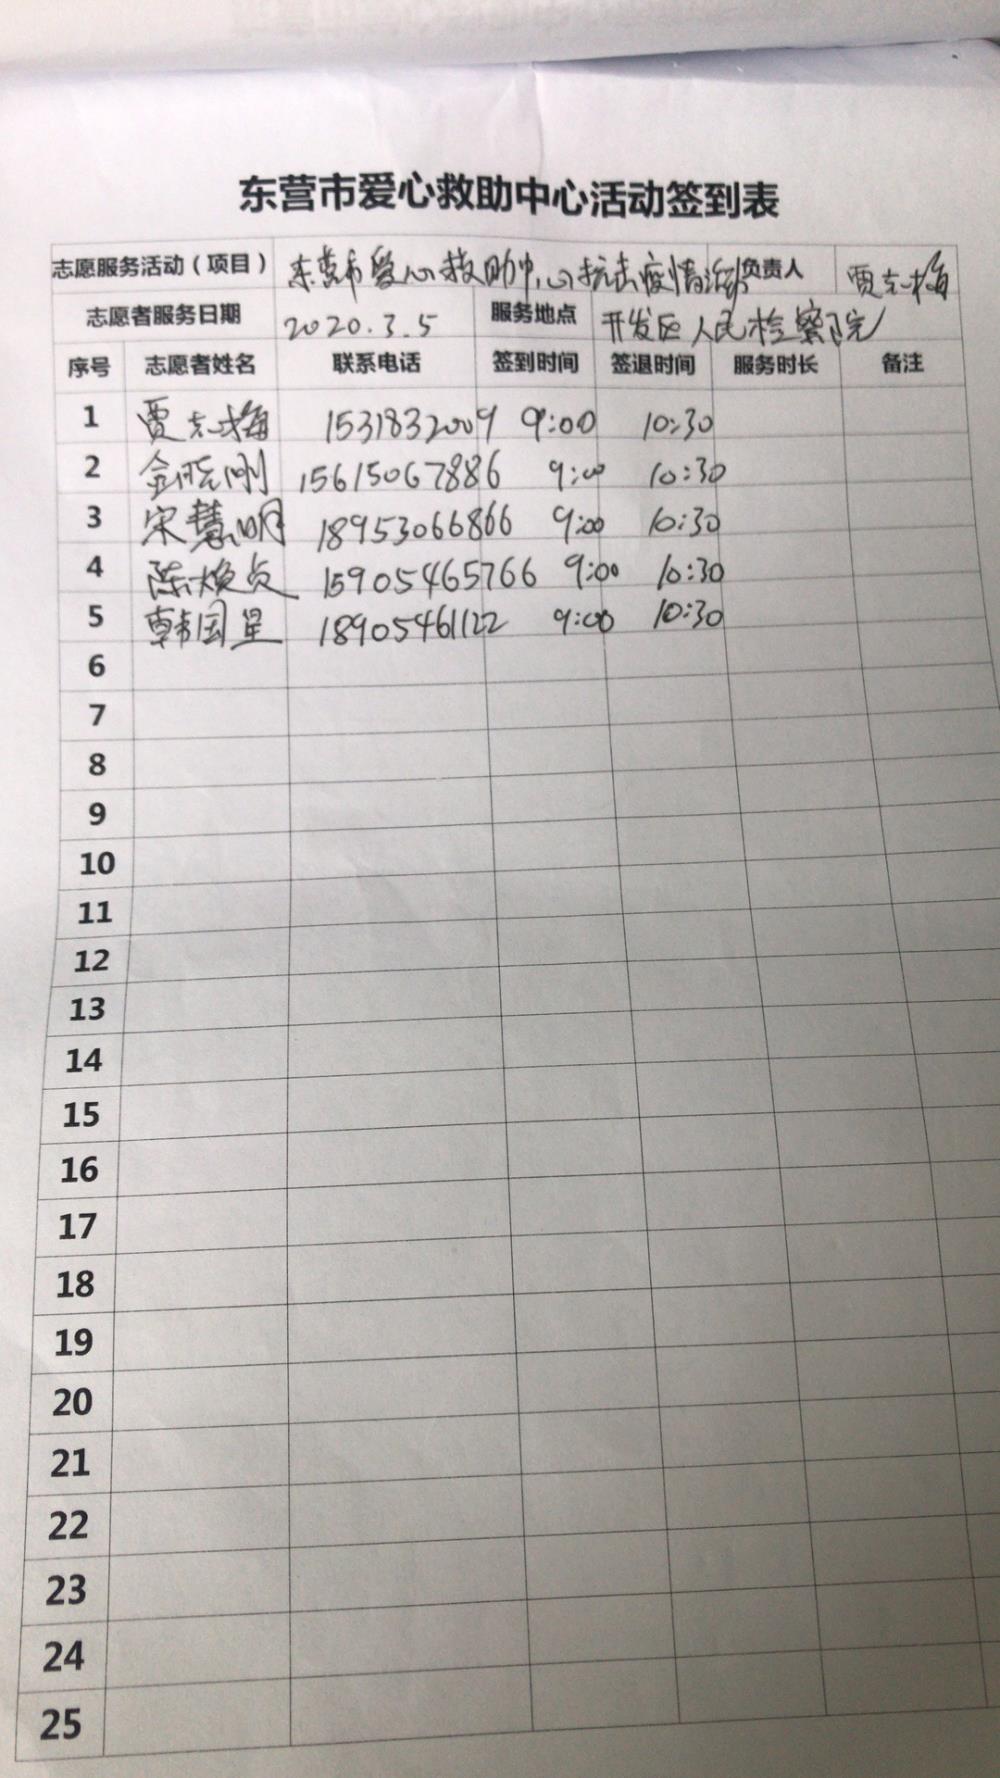 东营市爱心救助中心活动签到表
志愿服务活动（项目） 东营市爱心救助中心抗击疫情 负责人 贾志梅
志愿者服务日期 2020.3.5 服务地点 开发区人民检察院
序号 志愿者姓名 联系电话 签到时间 签退时间 服务时长 备注
1 贾志梅 15318332009 9:00 10:30
2 金晓刚 15615067886 9:00 10:30
3 宋慧明 18953066866 9:00 10:30
4 陈焕贞 15905465766 9:00 10:30
5 韩国星 18905461122 9:00 10:30
6
7
8
9
10
11
12
13
14
15
16
17
18
19
20
21
22
23
24
25